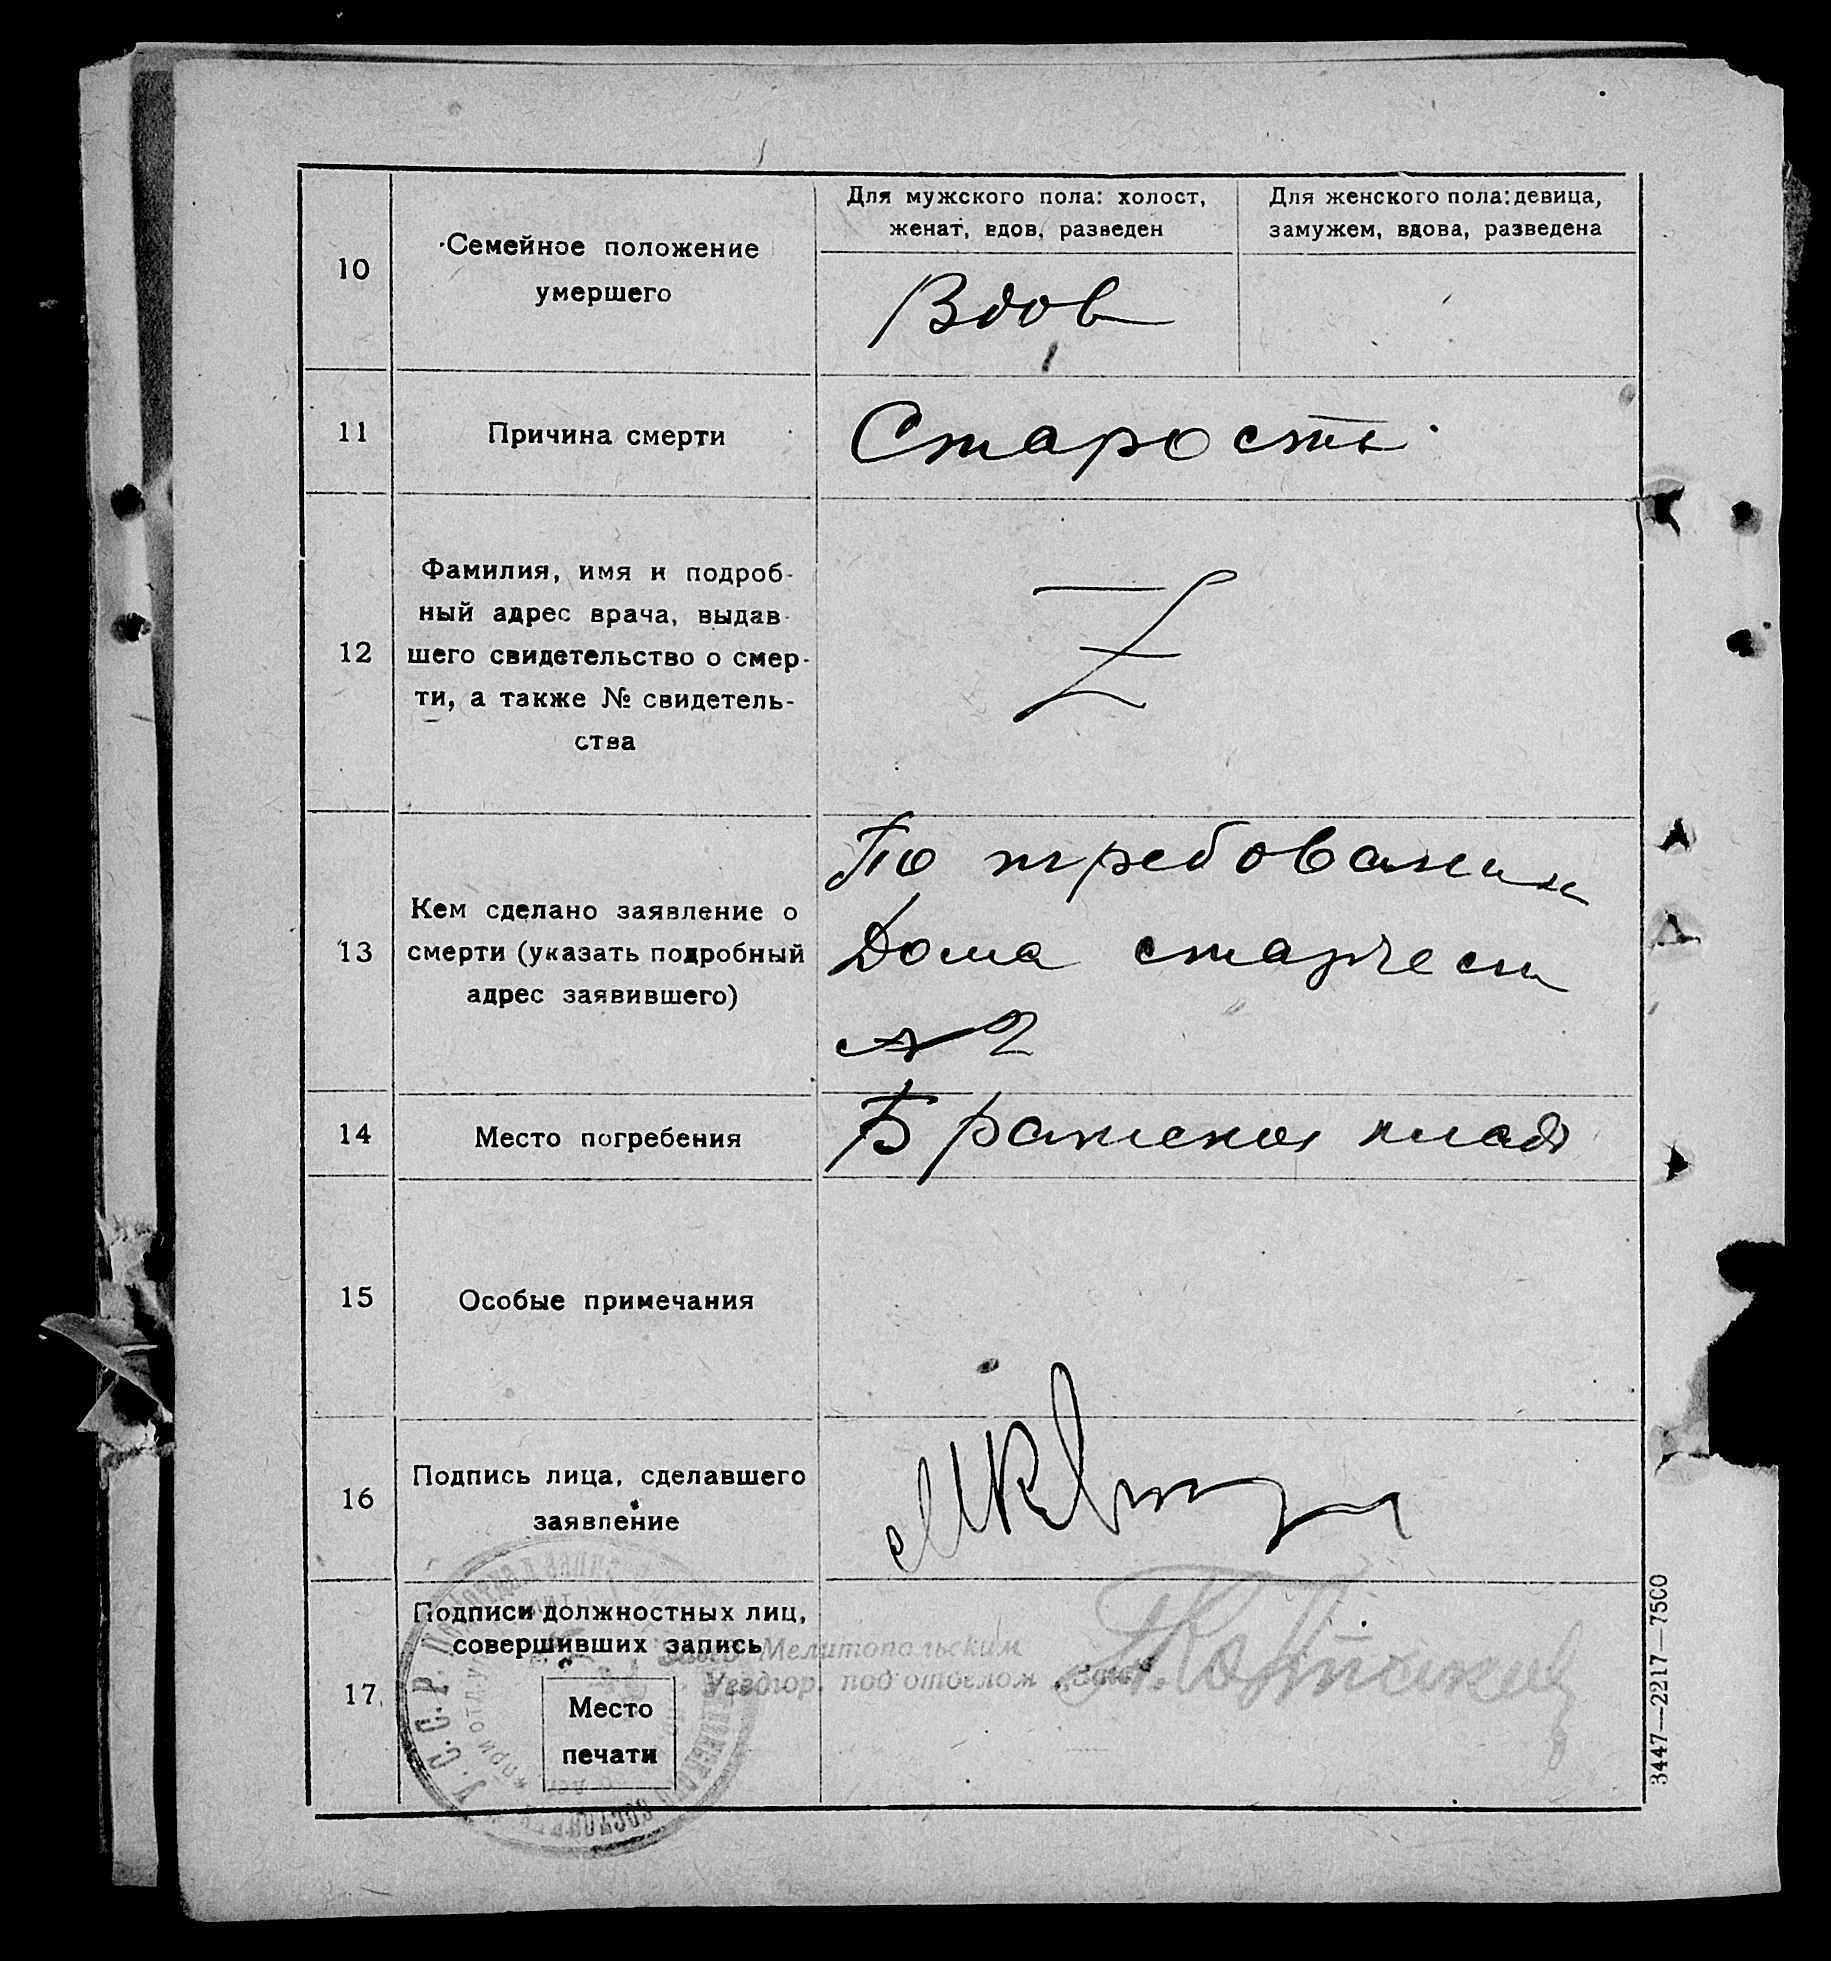 Для мужского пола: холост,
женат, вдов, разведен
Для женского пола: девица,
замужем, вдова, разведена
10
Семейное положение
умершего
Вдов
11
Причина смерти
Старость
12
Фамилия, имя и подроб-
ный адрес врача, выдав-
шего свидетельство о смер-
ти, а также № свидетель-
ства
Z
13
Кем сделано заявление о
смерти (указать подробный
адрес заявившего)
По требовании
Дома старческ
№ 2
14
Место погребения
Братское клад
15
Особые примечания
16
Подпись лица, сделавшего
заявление
17
Подписи должностных лиц,
совершивших запись
Место
печати
Завед. Мелитопольским
Уездгор. под'отделом „Загс“
У. С. С. Р.
3447—2217—7500